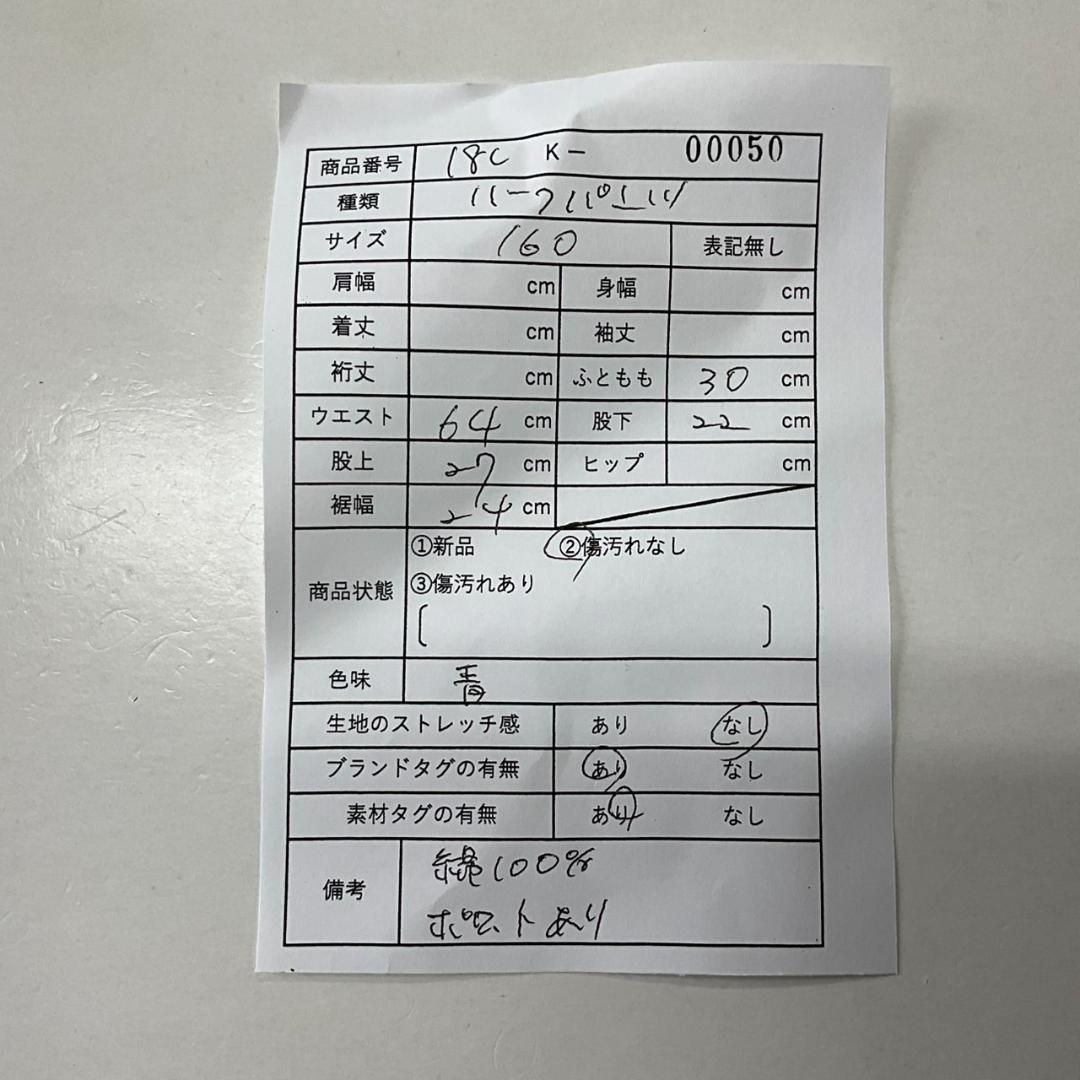 商品番号 18C K- 00050
種類 ハーフパンツ
サイズ 160 表記無し
肩幅 cm 身幅 cm
着丈 cm 袖丈 cm
裄丈 cm ふともも 30 cm
ウエスト 64 cm 股下 22 cm
股上 27 cm ヒップ cm
裾幅 24 cm
商品状態 ①新品 ②傷汚れなし
③傷汚れあり
[ ]
色味 青
生地のストレッチ感 あり なし
ブランドタグの有無 あり なし
素材タグの有無 あり なし
備考 綿100%
ポケットあり